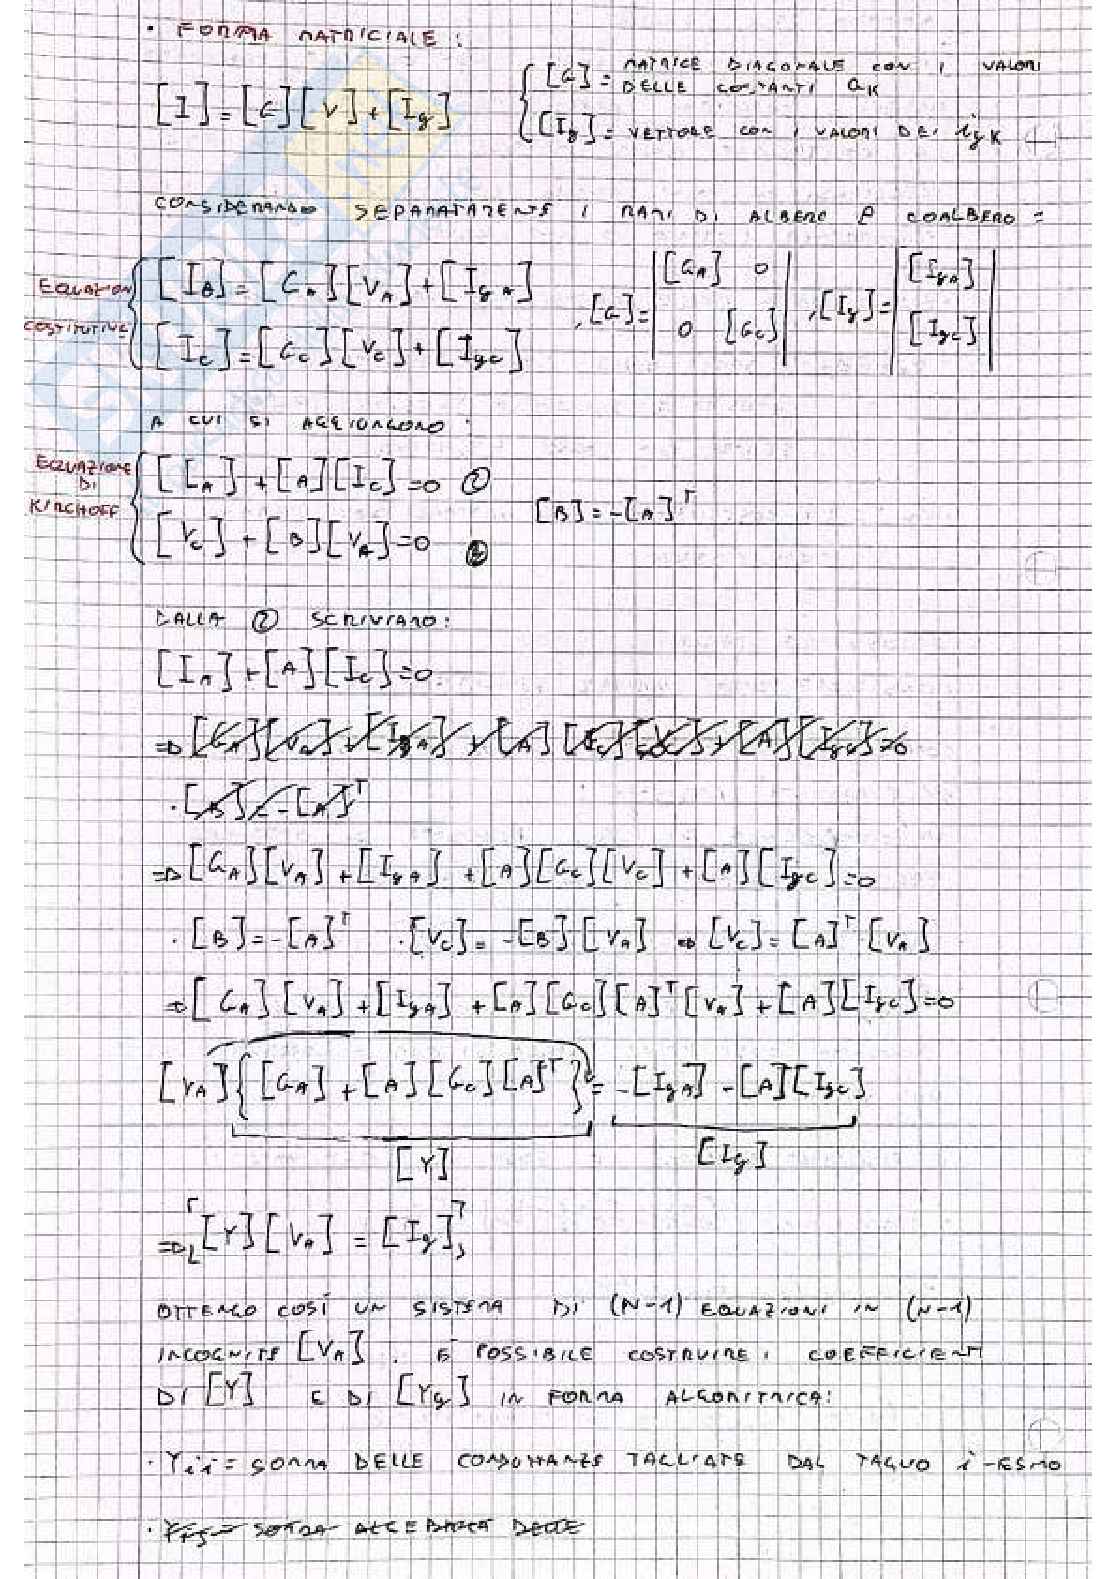 · FORMA MATRICIALE:
[I]=[G][V]+[Ig]
[G]= MATRICE DIAGONALE CON I VALORI
DELLE COSTANTI GK
[Ig]= VETTORE CON I VALORI DEI igK
CONSIDERANDO SEPARATAMENTE I RAMI DI ALBERO E COALBERO =
EQUAZIONI
COSTITUTIVE
[IA]=[GA][VA]+[IgA]
[IC]=[GC][VC]+[IgC]
,[G]= |[GA] 0|
|0 [GC]|
,[Ig]= |[IgA]|
|[IgC]|
A CUI SI AGGIUNGONO:
EQUAZIONE
DI
KIRCHOFF
[IA]+[A][IC]=0 ②
[VC]+[B][VA]=0
[B]=-[A]^T
DALLA ② SCRIVIAMO:
[IA]+[A][IC]=0
⇒ [GA][VA]+[IgA]+[A][GC][VC]+[A][IgC]=0
· [B]=-[A]^T
⇒ [GA][VA]+[IgA]+[A][GC][VC]+[A][IgC]=0
· [B]=-[A]^T · [VC]=-[B][VA] ⇒ [VC]=[A]^T[VA]
⇒ [GA][VA]+[IgA]+[A][GC][A]^T[VA]+[A][IgC]=0
[VA]{[GA]+[A][GC][A]^T}=-[IgA]-[A][IgC]
[Y] [Ig]
⇒ [Y][VA]=[Ig]
OTTENGO COSÍ UN SISTEMA DI (N-1) EQUAZIONI IN (N-1)
INCOGNITE [VA]. È POSSIBILE COSTRUIRE I COEFFICIENTI
DI [Y] E DI [Yg] IN FORMA ALGORITMICA:
· Yii = SOMMA DELLE CONDUTTANZE TAGLIATE DAL TAGLIO i-ESMO
· Yij = SOMMA ALGEBRICA DELLE